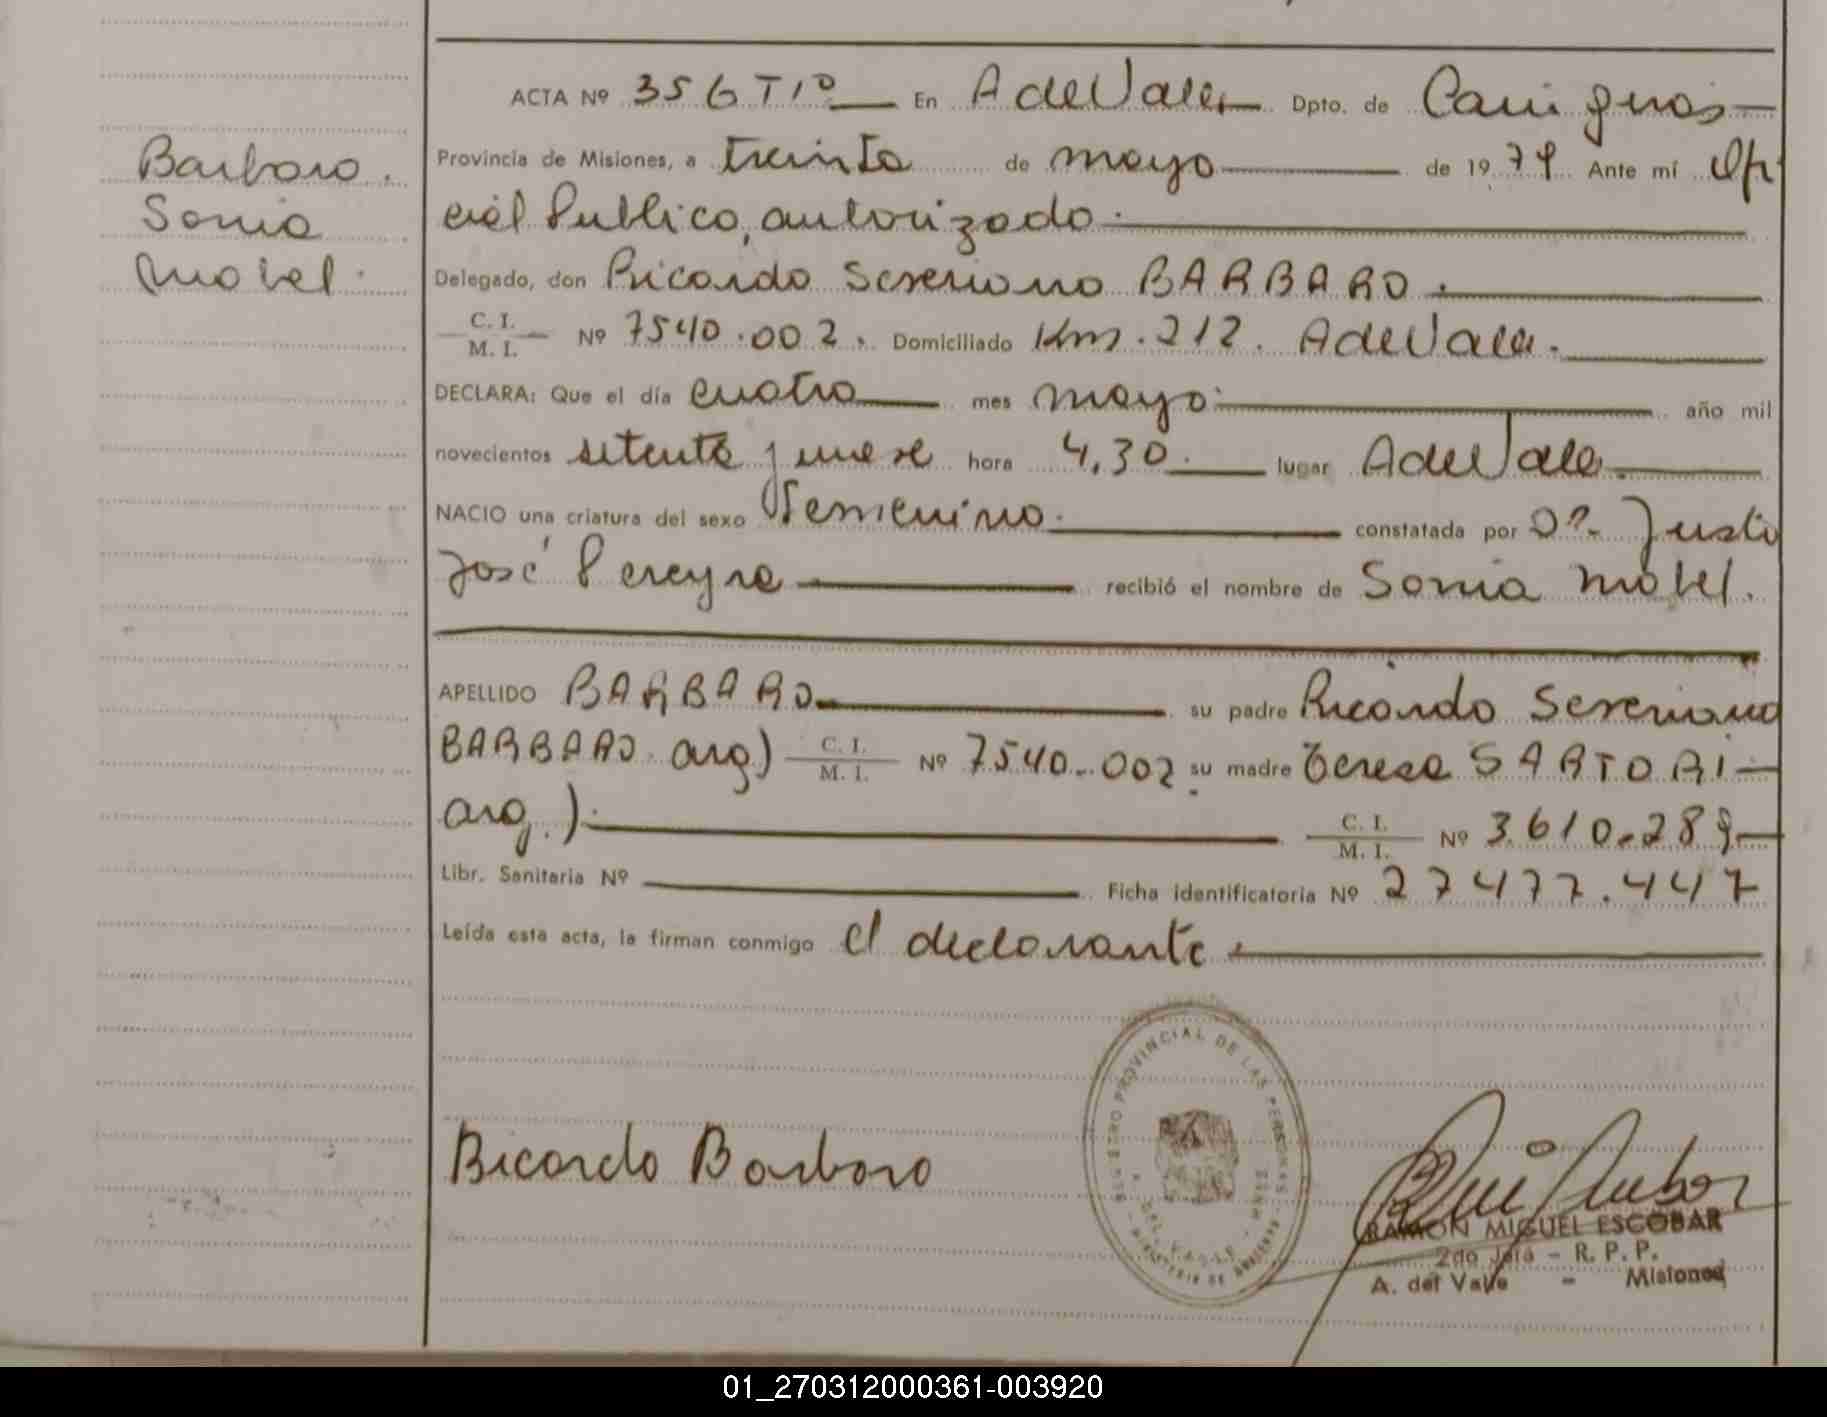 Barbaro.
Sonia
Mabel.
ACTA Nº 356 T1º En A del Valle Dpto. de Cainguas
Provincia de Misiones, a treinta de mayo de 1979 Ante mí Ofi
cial Publico, autorizado.
Delegado, don Ricardo Severiano BARBARO.
C. I.
M. I. Nº 7540.002. Domiciliado Km. 212. A del Valle.
DECLARA: Que el día cuatro mes mayo. año mil
novecientos setenta y nueve hora 4,30. lugar A del Valle.
NACIO una criatura del sexo Femenino. constatada por Justo
José Pereyra recibió el nombre de Sonia Mabel.
APELLIDO BARBARO su padre Ricardo Severiano
BARBARO. arg) C. I. M. I. Nº 7540.002 su madre Teresa SARTORI
arg.) C. I. M. I. Nº 3.610.289
Libr. Sanitaria Nº Ficha identificatoria Nº 27477.447
Leída esta acta, la firman conmigo el declarante.
REGISTRO PROVINCIAL DE LAS PERSONAS
Ricardo Barbaro
RAMON MIGUEL ESCOBAR
2do Jefe - R. P. P.
A. del Valle - Misiones
01_270312000361-003920